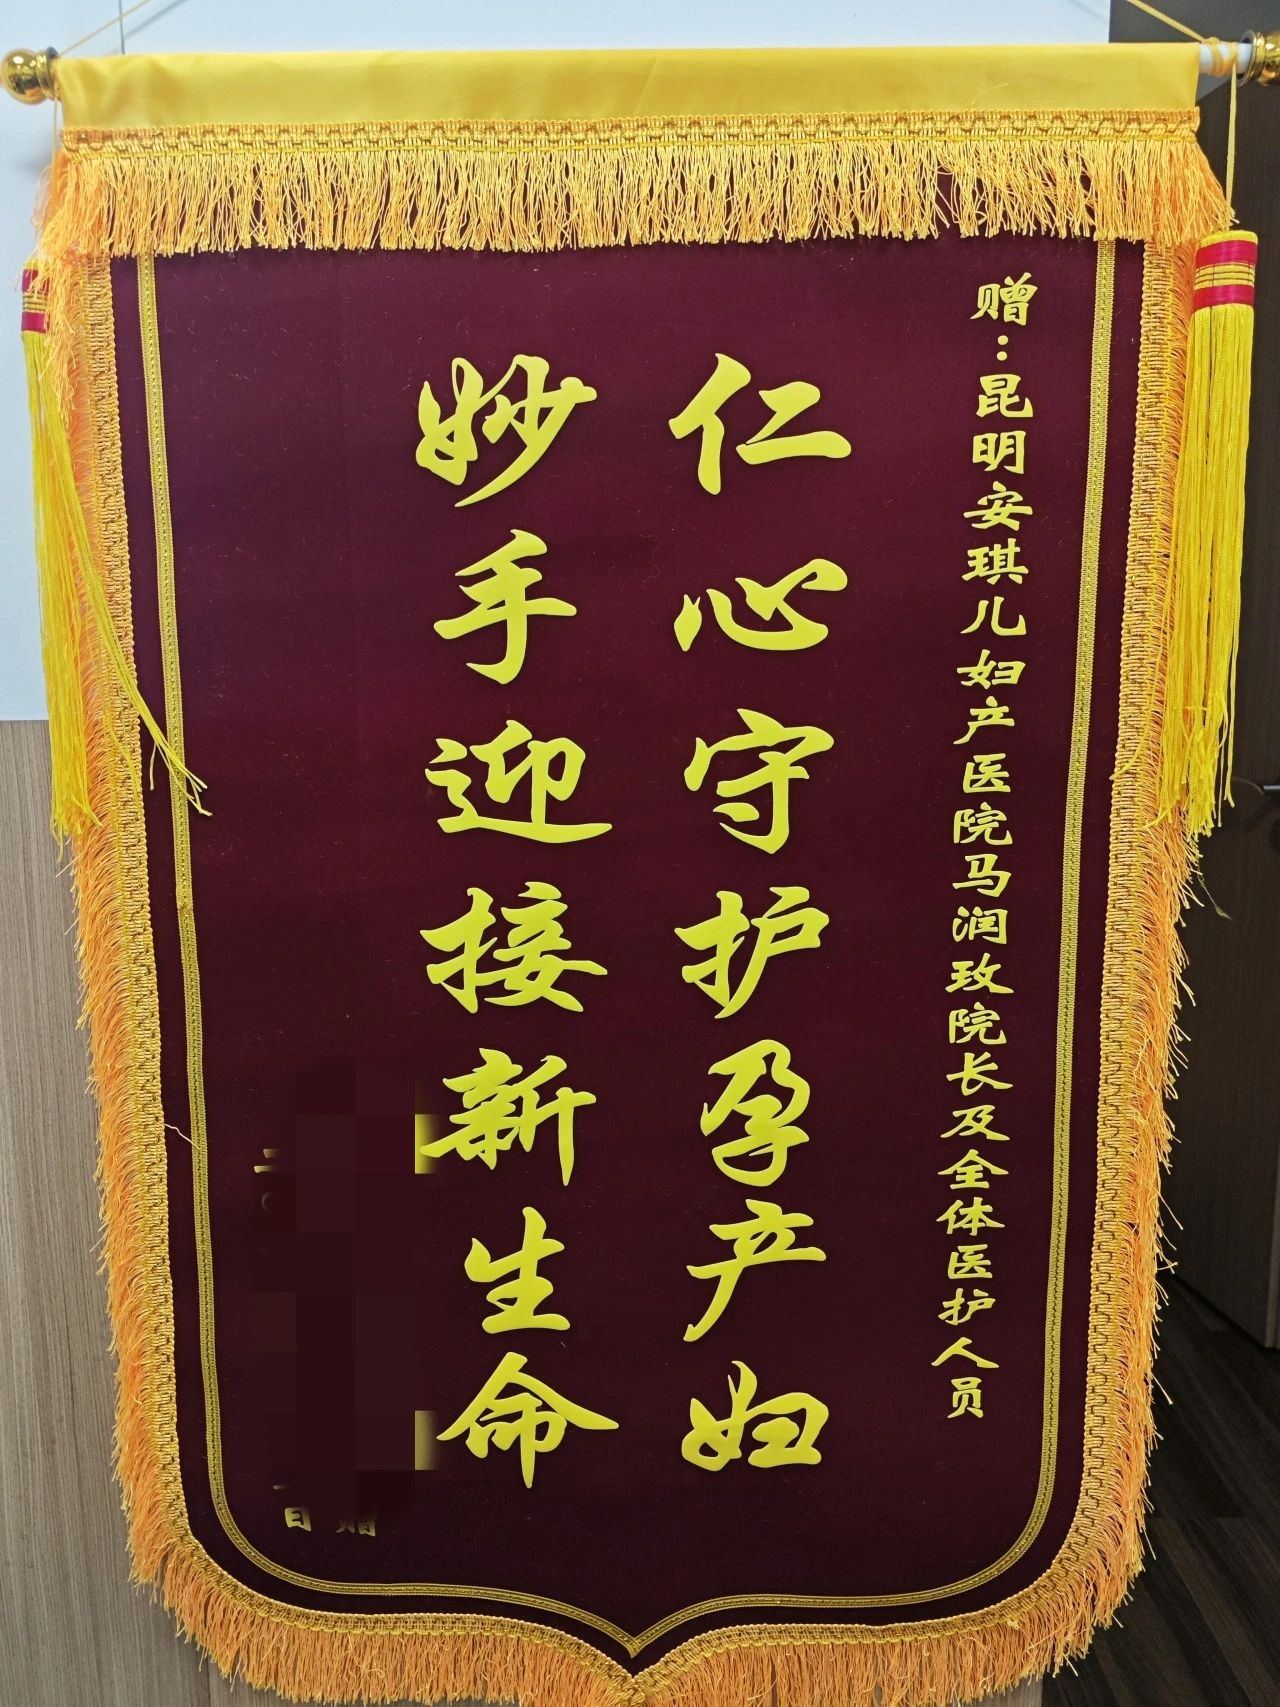 赠：昆明安琪儿妇产医院马润玫院长及全体医护人员
仁心守护孕产妇
妙手迎接新生命
赠
日